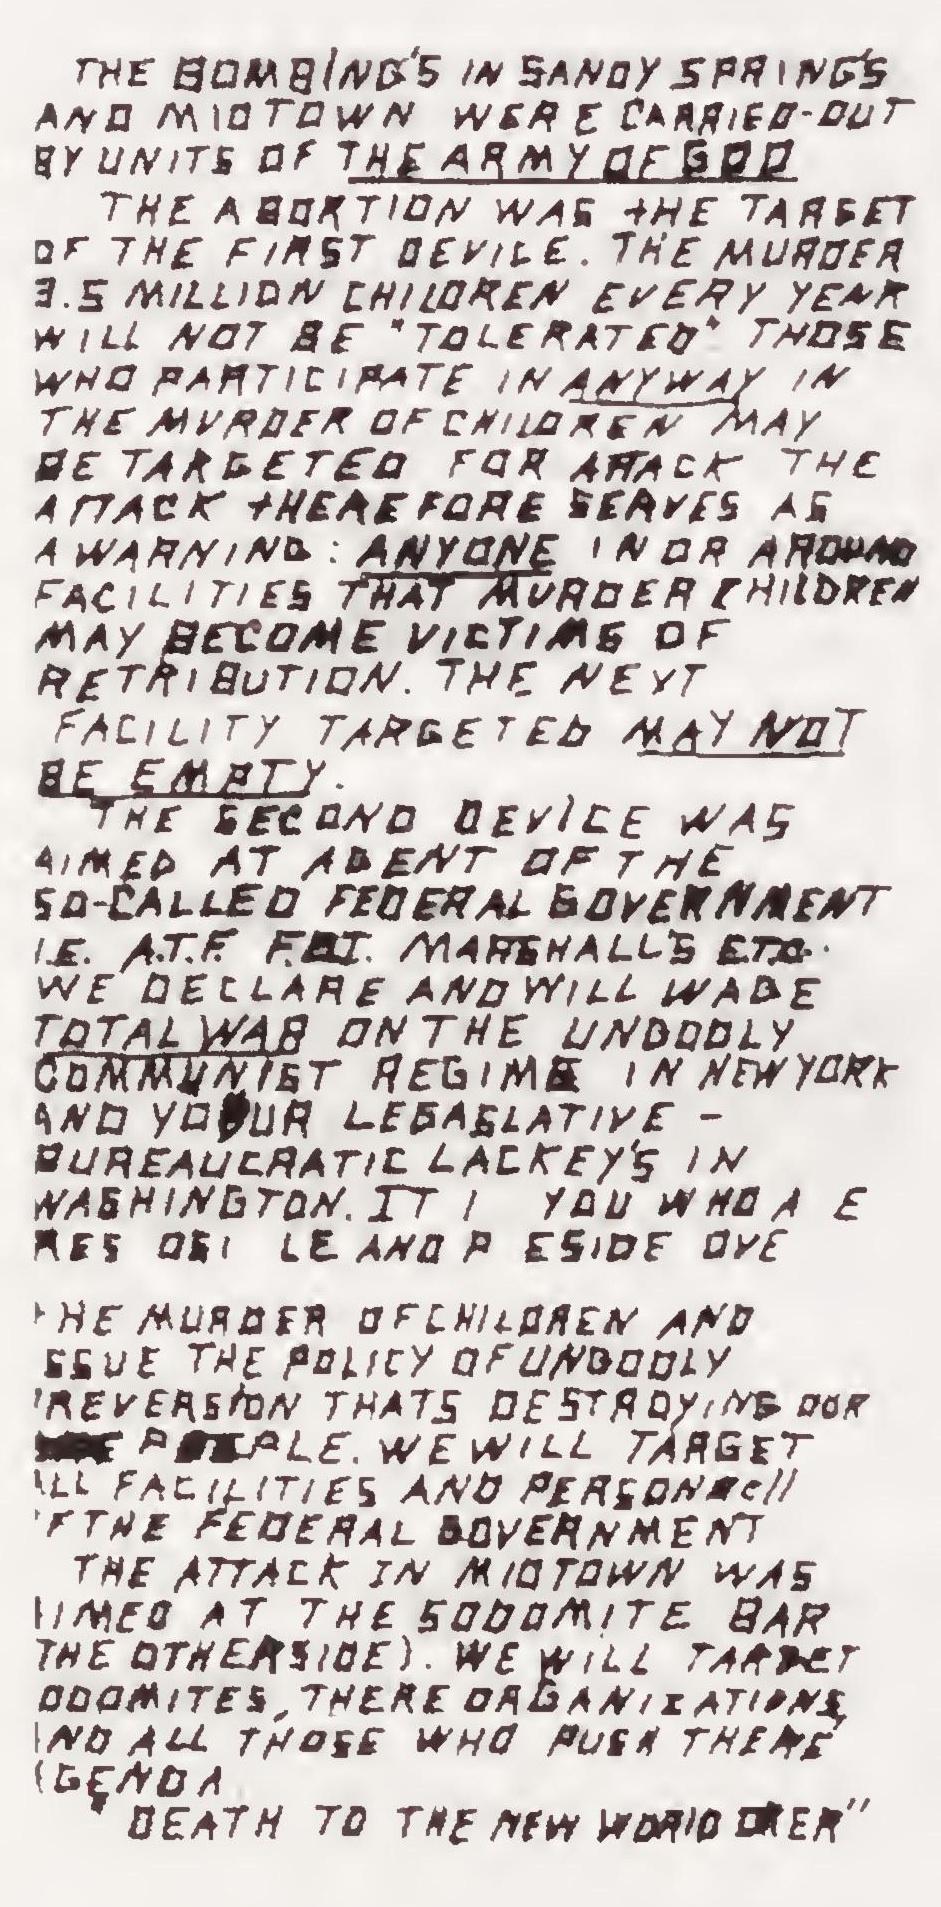 THE BOMBING'S IN SANDY SPRING'S
AND MIDTOWN WERE CARRIED-OUT
BY UNITS OF THE ARMY OF GOD
THE ABORTION WAS tHE TARGET
OF THE FIRST DEVICE. THE MURDER
3.5 MILLION CHILDREN EVERY YEAR
WILL NOT BE "TOLERATED" THOSE
WHO PARTICIPATE IN ANYWAY IN
THE MURDER OF CHILDREN MAY
BE TARGETED FOR ATTACK THE
ATTACK tHEREFORE SERVES AS
A WARNING: ANYONE IN OR AROUND
FACILITIES THAT MURDER CHILDREN
MAY BECOME VICTIMS OF
RETRIBUTION. THE NEXT
FACILITY TARGETED MAY NOT
BE EMPTY.
THE SECOND DEVICE WAS
AIMED AT AGENT OF THE
SO-CALLED FEDERAL GOVERNMENT
I.E. A.T.F. F.B.I. MARSHALL'S ETC.
WE DECLARE AND WILL WAGE
TOTAL WAR ON THE UNGODLY
COMMUNIST REGIME IN NEW YORK
AND YOUR LEGASLATIVE -
BUREAUCRATIC LACKEY'S IN
WASHINGTON. IT I YOU WHO A E
RES OSI LE AND P ESIDE OVE
tHE MURDER OF CHILDREN AND
ISSUE THE POLICY OF UNGODLY
REVERSION THATS DESTROYING OUR
PEOPLE. WE WILL TARGET
ALL FACILITIES AND PERSONNEll
OF THE FEDERAL GOVERNMENT
THE ATTACK IN MIDTOWN WAS
AIMED AT THE SODOMITE BAR
THE OTHERSIDE). WE WILL TARGET
ODOMITES, THERE ORGANIZATIONS,
AND ALL THOSE WHO PUSH THERE
AGENDA
"DEATH TO THE NEW WORLD ORER"